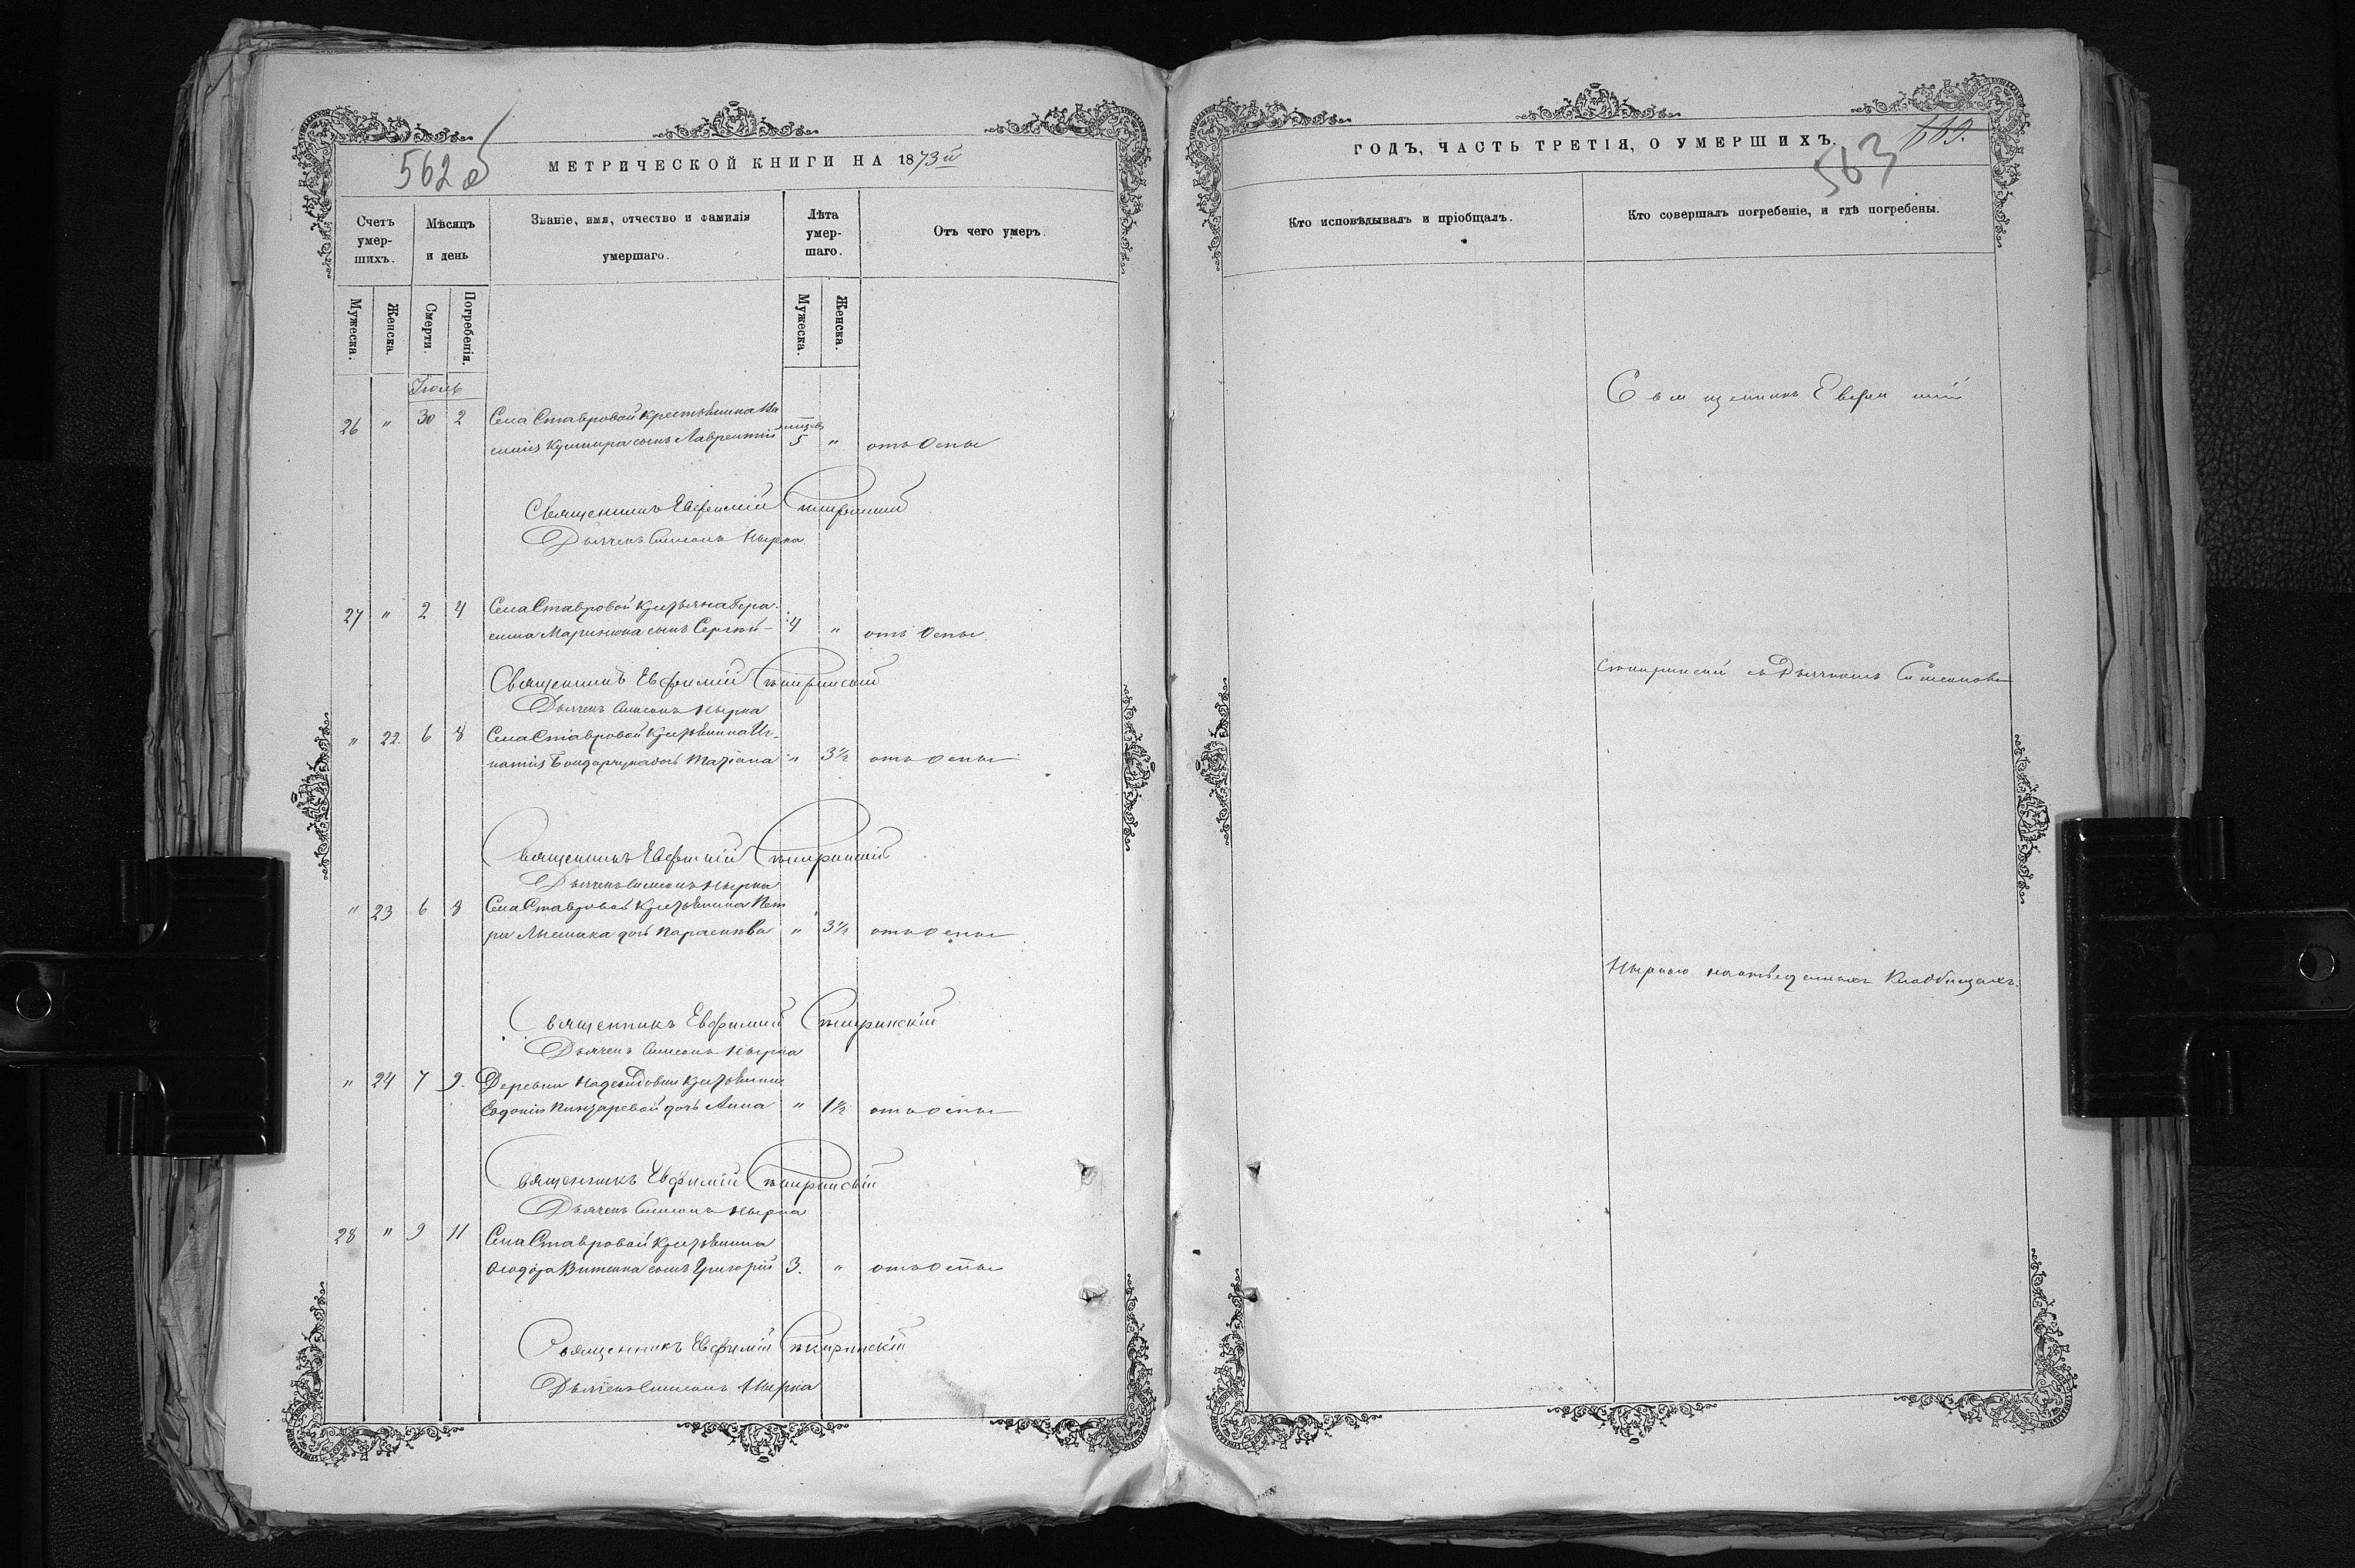 562 об
МЕТРИЧЕСКОЙ КНИГИ НА 1873й
Счетъ умер-шихъ.
Мѣсяцъ и день
Званіе, имя, отчество и фамилія умершаго.
Лѣта умер-шаго.
Отъ чего умеръ.
Мужеска.
Женска.
Смерти.
Погребенія.
Мужеска.
Женска.
Іюль
26 " 30 2 Села Ставровой крестьянина
Кушнира сынъ Лаврентій 5 " отъ Оспы
Священникъ Евфимій
Дьячекъ Симеонъ Нырка
27 " 2 4 Села Ставровой Крестьянина Гера-
сима Маринюка сынъ Сергѣй 4 " отъ Оспы
Священникъ Евфимій
Дьячекъ Симеонъ Нырка
" 22. 6 8 Села Ставровой Крестьянина Иг-
натія Бондарчука дочь Татіана " 3½ отъ Оспы
Священникъ Евфимій
Дьячекъ Симеонъ Нырка
" 23 6 8 Села Ставровой Крестьянина Пет
ра дочь Параскева " 3½ отъ Оспы
Священникъ Евфимій
Дьячекъ Симеонъ Нырка
" 24 7 9. Деревни
дочь Анна " 1½ отъ Оспы
Священникъ Евфимій
Дьячекъ Симеонъ Нырка
28 " 9 11 Села Ставровой Крестьянина
Ѳеодора сынъ Григорій 3. " отъ Оспы
Священникъ Евфимій
Дьячекъ Симеонъ Нырка
ГОДЪ, ЧАСТЬ ТРЕТІЯ, О УМЕРШИХЪ.
563
Кто исповѣдывалъ и пріобщалъ.
Кто совершалъ погребеніе, и гдѣ погребены.
Священникъ Евфимій
съ Дьячкомъ Симеономъ
Ныркою на отведенныхъ Кладбищахъ.